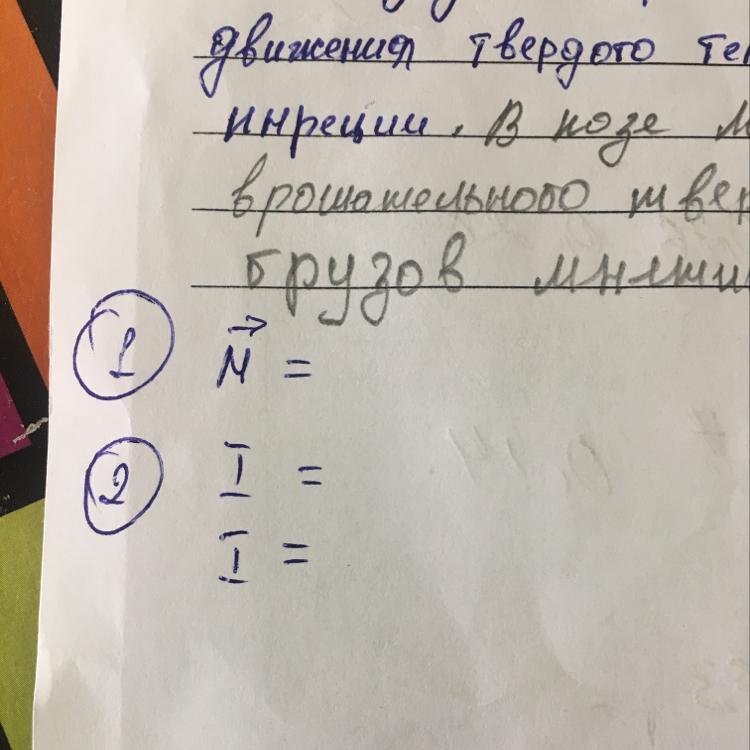 движения твердого те
инреции. В позе м
врошательного твер
брузов
1 M⃗ =
2 I =
I =